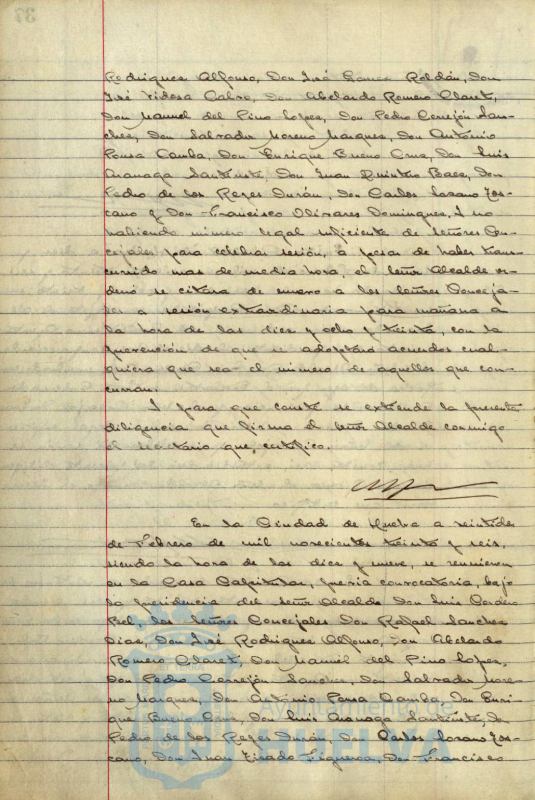 37
Rodriguez Alfonso, Don José Gomez Roldán, Don
José Vidosa Calvo, Don Abelardo Romero Claret,
Don Manuel del Pino Lopez, Don Pedro Cerrejón San-
chez, Don Salvador Moreno Marquez, Don Antonio
Ponsa Camba, Don Enrique Bueno Cruz, Don Luis
Aranaga Santiuste, Don Juan Quintero Baez, Don
Pedro de los Reyes Durán, Don Carlos Lozano Tos-
cano y Don Francisco Olivares Dominguez. Y no
habiendo número legal suficiente de Señores Con-
cejales para celebrar sesión, a pesar de haber trans-
currido mas de media hora, el Señor Alcalde or-
denó se citara de nuevo a los Señores Conceja-
les a sesión extraordinaria para mañana a
la hora de las diez y ocho y treinta, con la
prevención de que se adoptará acuerdos cual-
quiera que sea el número de aquellos que con-
curran.
Y para que conste se extiende la presente
diligencia que firma el Señor Alcalde conmigo
el Secretario que, certifico.
En la Ciudad de Huelva a veintidos
de Febrero de mil novecientos treinta y seis,
siendo la hora de las diez y nueve, se reunieron
en la Casa Capitular, previa convocatoria, bajo
la presidencia del Señor Alcalde Don Luis Cordero
Bel, los Señores Concejales Don Rafael Sanchez
Diaz, Don José Rodriguez Alfonso, Don Abelardo
Romero Claret, Don Manuel del Pino Lopez,
Don Pedro Cerrejón Sanchez, Don Salvador More-
no Marquez, Don Antonio Ponsa Camba, Don Enri-
que Bueno Cruz, Don Luis Aranaga Santiuste, Don
Pedro de los Reyes Durán, Don Carlos Lozano Tos-
cano, Don Juan Tirado Figueroa, Don Francisco
Ayuntamiento de
HUELVA